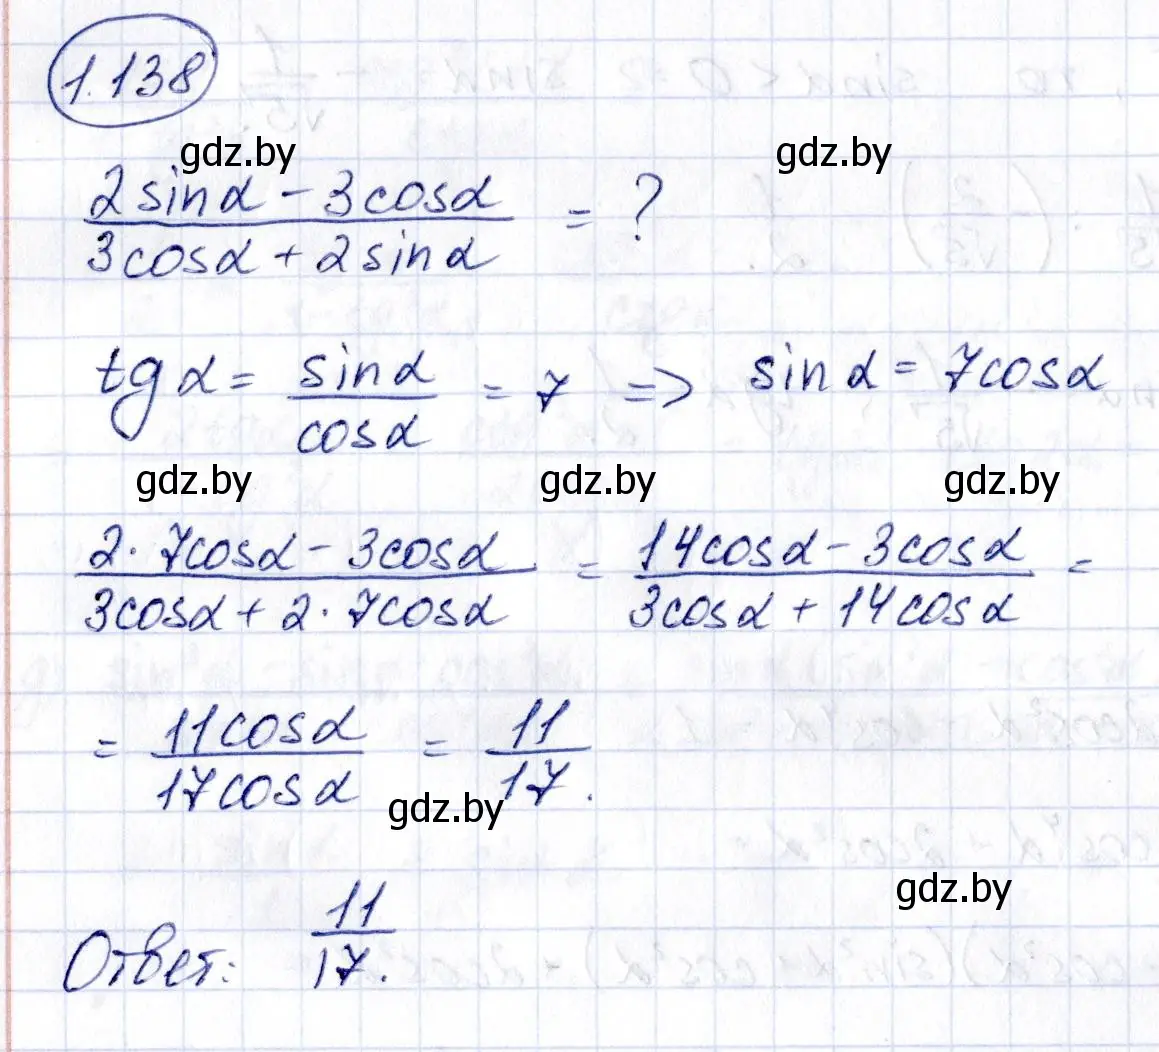 1.138
gdz.by gdz.by
(2 sin α - 3 cos α) / (3 cos α + 2 sin α) = ?
tg α = sin α / cos α = 7 => sin α = 7 cos α
gdz.by gdz.by gdz.by
(2 · 7 cos α - 3 cos α) / (3 cos α + 2 · 7 cos α) = (14 cos α - 3 cos α) / (3 cos α + 14 cos α) =
= 11 cos α / 17 cos α = 11 / 17.
gdz.by
gdz.by
Ответ: 11 / 17.